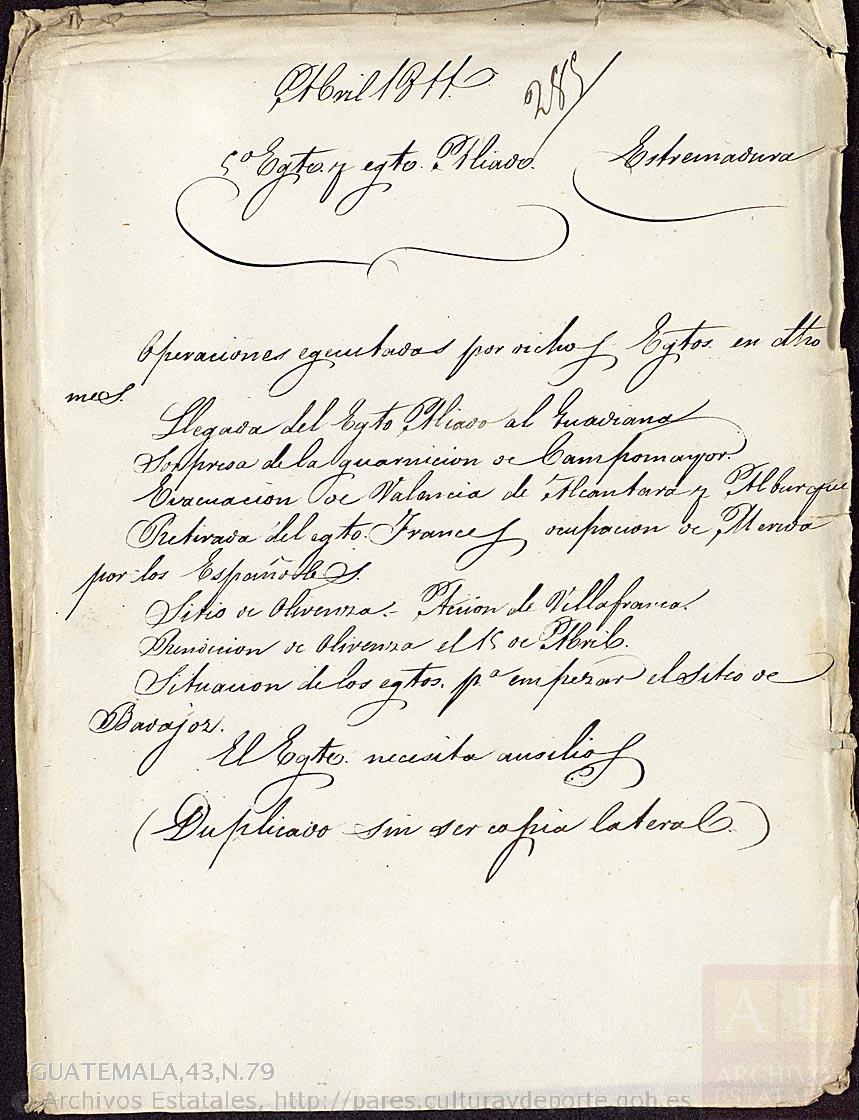 Abril 1811.
285
5º Egto. y egto. Aliado.
Estremadura
Operaciones egecutadas por dichos Egtos. en dho
mes.
Llegada del Egto Aliado al Guadiana
Sorpresa de la guarnicion de Campomayor.
Evacuacion de Valancia de Alcantara y Alburque
Retirada del egto. Frances ocupacion de Merida
por los Españoles.
Sitio de Olivenza.- Accion de Villafranca.
Rendicion de Olivenza el 15 de Abril.
Situacion de los egtos. pª empezar el sitio de
Badajoz.
El Egto. necesita ausilios
(Duplicado sin ser copia lateral.)
GUATEMALA,43,N.79
© Archivos Estatales, http://pares.culturaydeporte.gob.es
AE
ARCHIVOS
ESTATALES